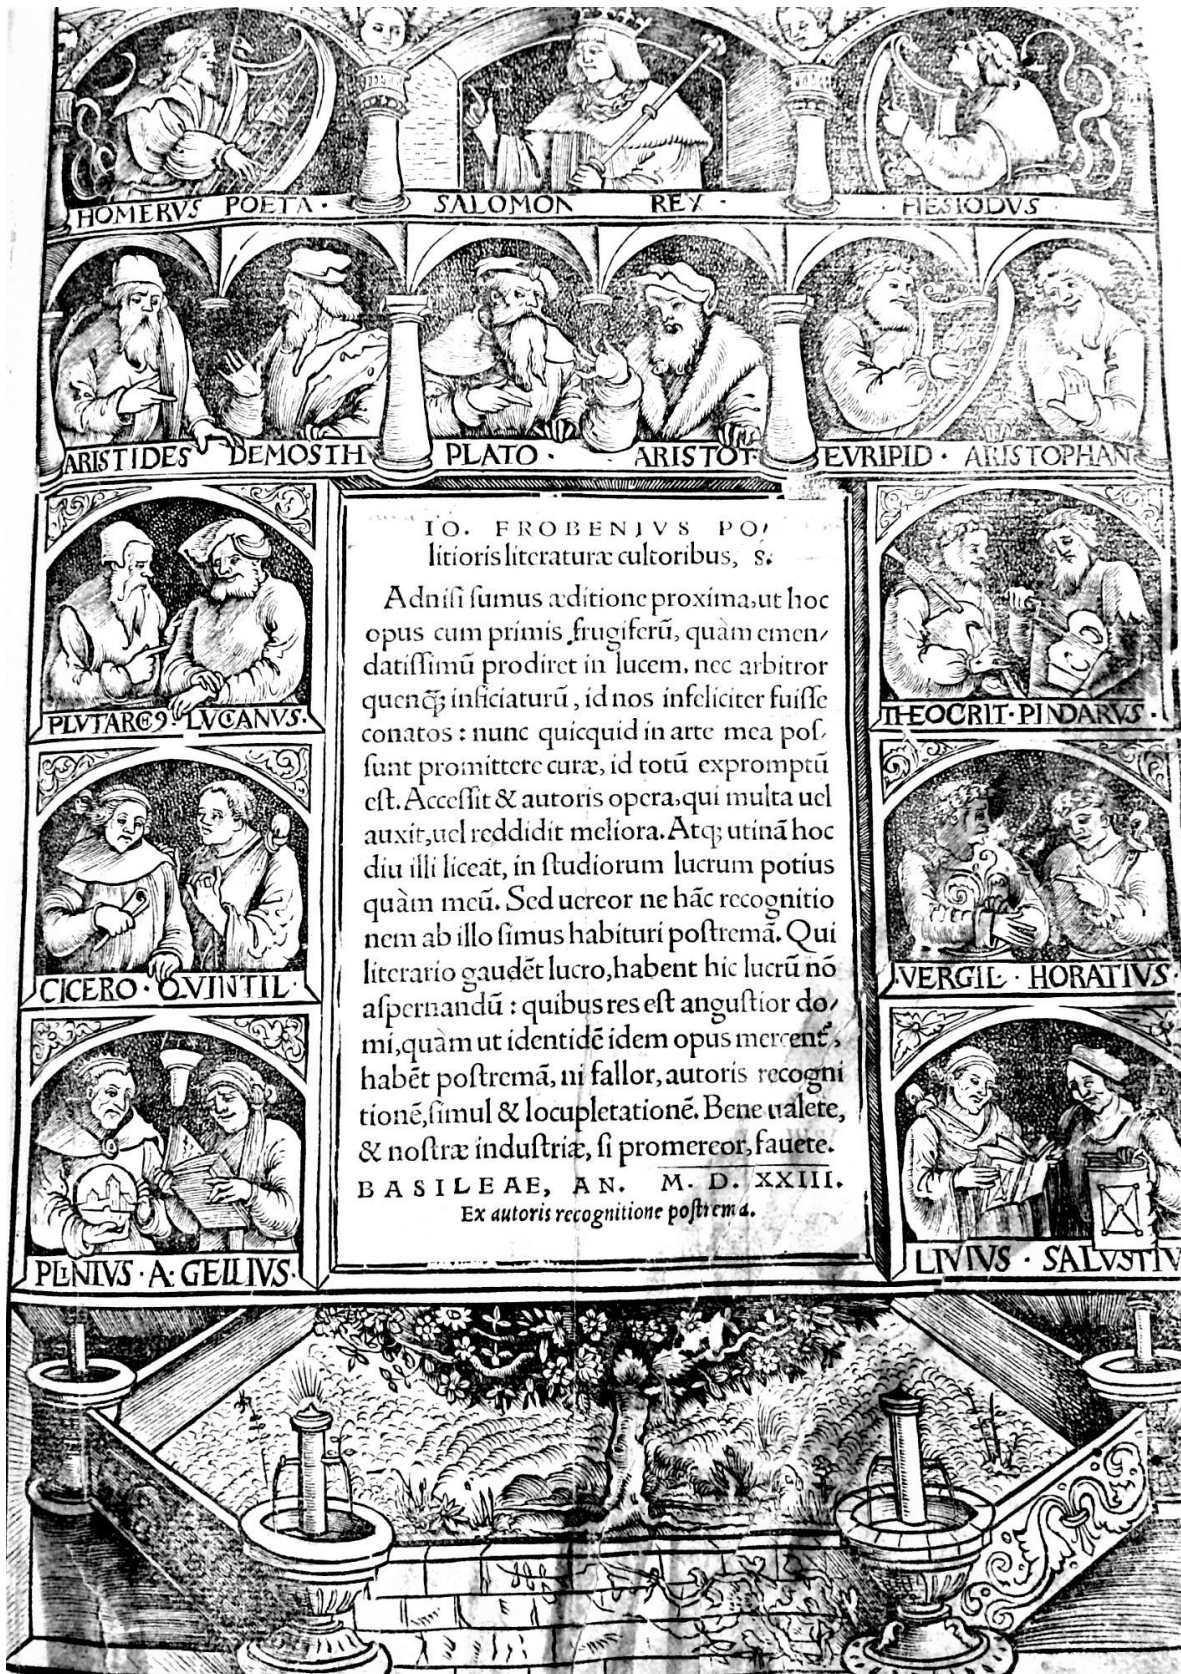 HOMERVS POETA · SALOMON REX · HESIODVS ·
ARISTIDES DEMOSTH PLATO · ARISTOT EVRIPID · ARISTOPHAN
PLVTARC9 · LVCIANVS ·
THEOCRIT · PINDARVS ·
CICERO · QVINTIL ·
VERGIL · HORATIVS ·
PLINIVS · A · GELLIVS ·
LIVIVS · SALVSTIV
IO. FROBENIVS PO/
litioris literaturæ cultoribus, S.
Adniſi ſumus æditione proxima, ut hoc
opus cum primis frugiferũ, quàm emen/
datiſſimũ prodiret in lucem, nec arbitror
quenq; inficiaturũ, id nos infeliciter fuiſſe
conatos : nunc quicquid in arte mea poſ/
ſunt promittere curæ, id totũ expromptũ
eſt. Acceſſit & autoris opera, qui multa uel
auxit, uel reddidit meliora. Atq; utinã hoc
diu illi liceat, in ſtudiorum lucrum potius
quàm meũ. Sed uereor ne hãc recognitio
nem ab illo ſimus habituri poſtremã. Qui
literario gaudẽt lucro, habent hic lucrũ nõ
aſpernandũ : quibus res eſt anguſtior do/
mi, quàm ut identidẽ idem opus mercent᷑,
habẽt poſtremã, ni fallor, autoris recogni
tionẽ, ſimul & locupletationẽ. Bene ualete,
& noſtræ induſtriæ, ſi promereor, fauete.
BASILEAE, AN. M. D. XXIII.
Ex autoris recognitione poſtrema.